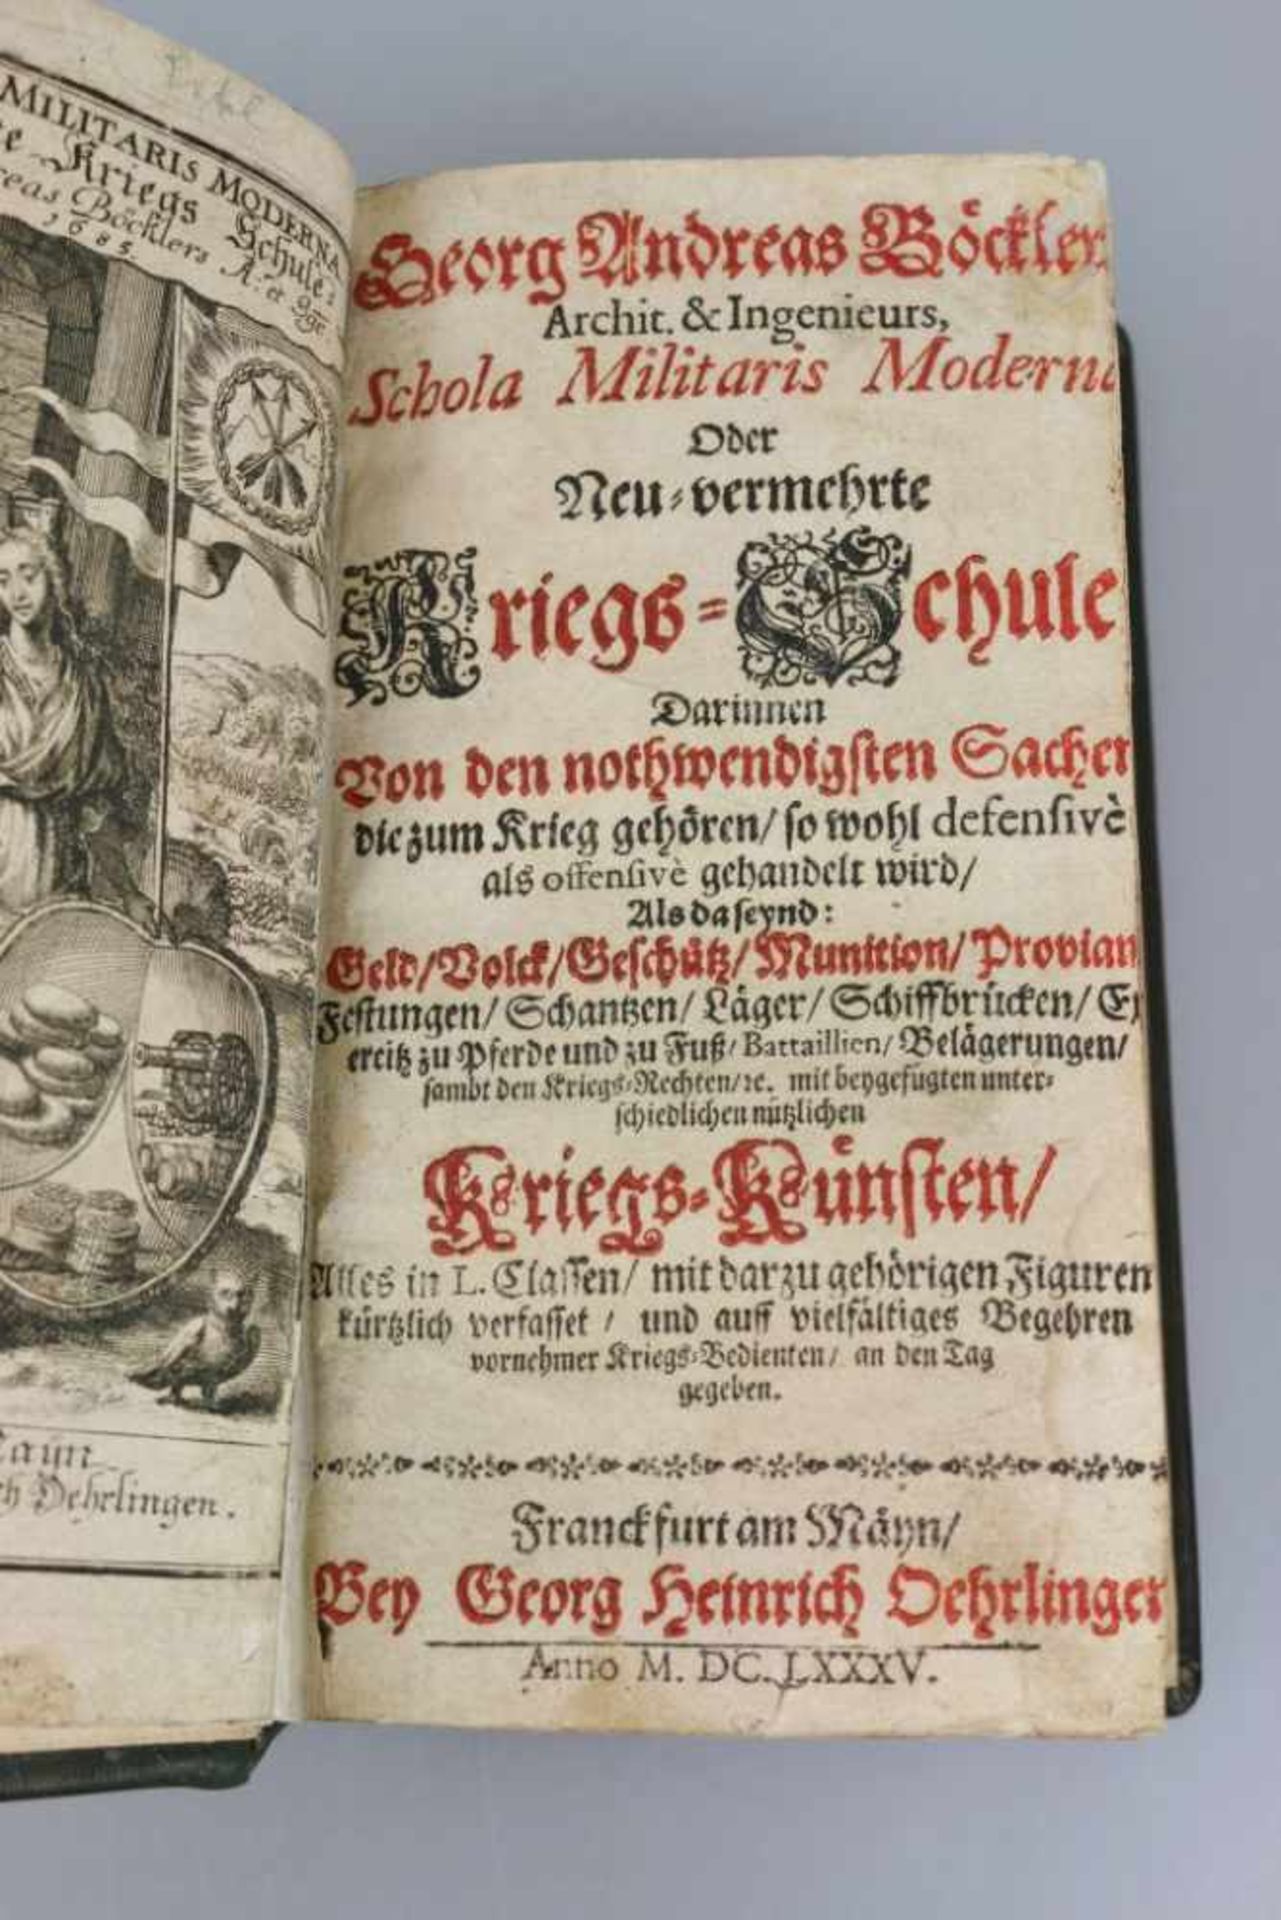 MILITARIS MODERNA
Kriegs Schule:
Böcklers A. et
1685.
Mayn
Oehrlingen.
Georg Andreas Böckler
Archit. & Ingenieurs,
Schola Militaris Moderna
Oder
Neu-vermehrte
Kriegs-Schule
Darinnen
Von den nothwendigsten Sachen
die zum Krieg gehören/ so wohl defensivè
als offensivè gehandelt wird/
Als da seynd:
Geld/ Volck/ Geschütz/ Munition/ Provian
Festungen/ Schantzen/ Läger/ Schiffbrücken/ Ex
ercitz zu Pferde und zu Fuß/ Battaillien/ Belägerungen/
sambt den Kriegs-Rechten/ ꝛc. mit beygefügten unter-
schiedlichen nützlichen
Kriegs-Künsten/
Alles in L. Classen/ mit darzu gehörigen Figuren
kürtzlich verfasset/ und auff vielfältiges Begehren
vornehmer Kriegs-Bedienten/ an den Tag
gegeben.
Franckfurt am Mäyn/
Bey Georg Heinrich Oehrlingen
Anno M. DC. LXXXV.